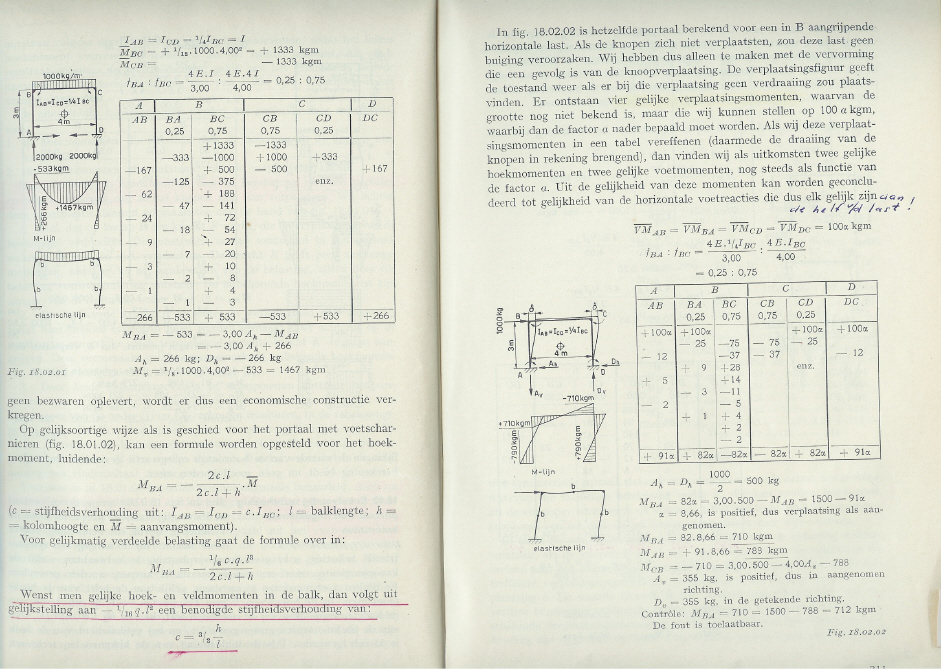 I_AB = I_CD = ¹/₄I_BC = I
M̅_BC = + ¹/₁₂.1000.4,00² = + 1333 kgm
M̅_CB = — 1333 kgm
f_BA : f_BC = 4 E.I / 3,00 : 4 E.4 I / 4,00 = 0,25 : 0,75
1000kg/m¹
B C
I_AB=I_CD=¼I_BC
4 m
3m
A D
2000kg 2000kg
-533kgm
+1467kgm
+266kgm
M-lijn
b b
b b
elastische lijn
A B C D
AB BA BC CB CD DC
0,25 0,75 0,75 0,25
+1333 —1333
—333 —1000 +1000 +333
—167 + 500 — 500 +167
—125 — 375 enz.
— 62 + 188
— 47 — 141
— 24 + 72
— 18 — 54
— 9 + 27
— 7 — 20
— 3 + 10
— 2 — 8
— 1 + 4
— 1 — 3
—266 —533 + 533 —533 +533 +266
M_BA = — 533 = — 3,00 A_h — M_AB
= — 3,00 A_h + 266
A_h = 266 kg; D_h = — 266 kg
Fig. 18.02.01
M_v = ¹/₈.1000.4,00² — 533 = 1467 kgm
geen bezwaren oplevert, wordt er dus een economische constructie ver-
kregen.
Op gelijksoortige wijze als is geschied voor het portaal met voetschar-
nieren (fig. 18.01.02), kan een formule worden opgesteld voor het hoek-
moment, luidende:
M_BA = — 2c.l / 2c.l + h . M̅
(c = stijfheidsverhouding uit: I_AB = I_CD = c.I_BC; l = balklengte; h =
= kolomhoogte en M̅ = aanvangsmoment).
Voor gelijkmatig verdeelde belasting gaat de formule over in:
M_BA = — ¹/₆ c.q.l³ / 2c.l + h
Wenst men gelijke hoek- en veldmomenten in de balk, dan volgt uit
gelijkstelling aan — ¹/₁₆ q.l² een benodigde stijfheidsverhouding van:
c = ³/₂ h / l
In fig. 18.02.02 is hetzelfde portaal berekend voor een in B aangrijpende
horizontale last. Als de knopen zich niet verplaatsten, zou deze last geen
buiging veroorzaken. Wij hebben dus alleen te maken met de vervorming
die een gevolg is van de knoopverplaatsing. De verplaatsingsfiguur geeft
de toestand weer als er bij die verplaatsing geen verdraaiing zou plaats-
vinden. Er ontstaan vier gelijke verplaatsingsmomenten, waarvan de
grootte nog niet bekend is, maar die wij kunnen stellen op 100 α kgm,
waarbij dan de factor α nader bepaald moet worden. Als wij deze verplaat-
singsmomenten in een tabel vereffenen (daarmede de draaiing van de
knopen in rekening brengend), dan vinden wij als uitkomsten twee gelijke
hoekmomenten en twee gelijke voetmomenten, nog steeds als functie van
de factor α. Uit de gelijkheid van deze momenten kan worden geconclu-
deerd tot gelijkheid van de horizontale voetreacties die dus elk gelijk zijn aan
de helft v/d last!
V̅M̅_AB = V̅M̅_BA = V̅M̅_CD = V̅M̅_DC = 100α kgm
f_BA : f_BC = 4 E.¹/₄I_BC / 3,00 : 4 E.I_BC / 4,00
= 0,25 : 0,75
1000kg
B C
I_AB=I_CD=¼I_BC
4 m
3m
A D
A_h D_h
A_v D_v
-710kgm
+710kgm
-790kgm +790kgm
M-lijn
b
b b
elastische lijn
A B C D
AB BA BC CB CD DC
0,25 0,75 0,75 0,25
+100α +100α +100α +100α
— 25 —75 — 75 — 25
— 12 —37 — 37 — 12
+ 9 +28 enz.
+ 5 +14
— 3 —11
— 2 — 5
+ 1 + 4
+ 2
— 2
+ 91α + 82α —82α — 82α + 82α + 91α
A_h = D_h = 1000 / 2 = 500 kg
M_BA = 82α = 3,00.500 — M_AB = 1500 — 91α
α = 8,66, is positief, dus verplaatsing als aan-
genomen.
M_BA = 82.8,66 = 710 kgm
M_AB = + 91.8,66 = 788 kgm
M_CB = — 710 = 3,00.500 — 4,00A_v — 788
A_v = 355 kg, is positief, dus in aangenomen
richting.
D_v = 355 kg, in de getekende richting.
Contrôle: M_BA = 710 = 1500 — 788 = 712 kgm
De fout is toelaatbaar.
Fig. 18.02.02